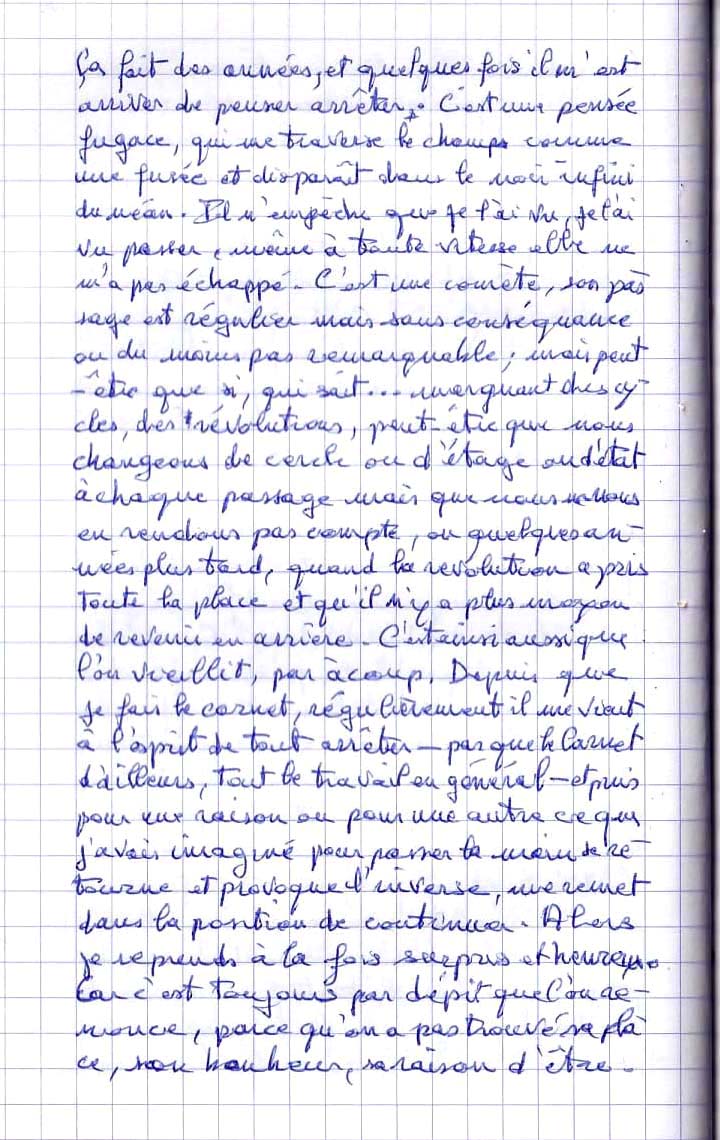 Ça fait des années, et quelques fois il m'est
arriver de penser arrêter. C'est une pensée
fugace, qui me traverse le champs comme
une fusée et disparaît dans le noir infini
du néan. Il n'empêche que je l'ai vu, je l'ai
vu passer, même à toute vitesse elle ne
m'a pas échappé. C'est une comète, son pas
sage est régulier mais sans conséquance
ou du moins pas remarquable; mais peut
-être que si, qui sait... marquant des cy-
cles, des révolutions, peut-être que nous
changeons de cercle ou d'étage ou d'état
à chaque passage mais que nous ne nous
en rendons pas compte, ou quelques an-
nées plus tard, quand la revolution a pris
toute la place et qu'il n'y a plus moyen
de revenir en arrière. C'est ainsi aussi que
l'on vieillit, par àcoup. Depuis que
je fais le carnet, régulièrement il me vient
à l'esprit de tout arrêter — pas que le Carnet
d'ailleurs, tout le travail en général — et puis
pour une raison ou pour une autre ce que
j'avais imaginé pour passer la main se re-
tourne et provoque l'inverse, me remet
dans la position de continuer. Alors
je reprends à la fois surpris et heureux.
Car c'est toujours par dépit que l'on re-
nonce, parce qu'on a pas trouvé sa pla
ce, son bonheur, sa raison d'être.